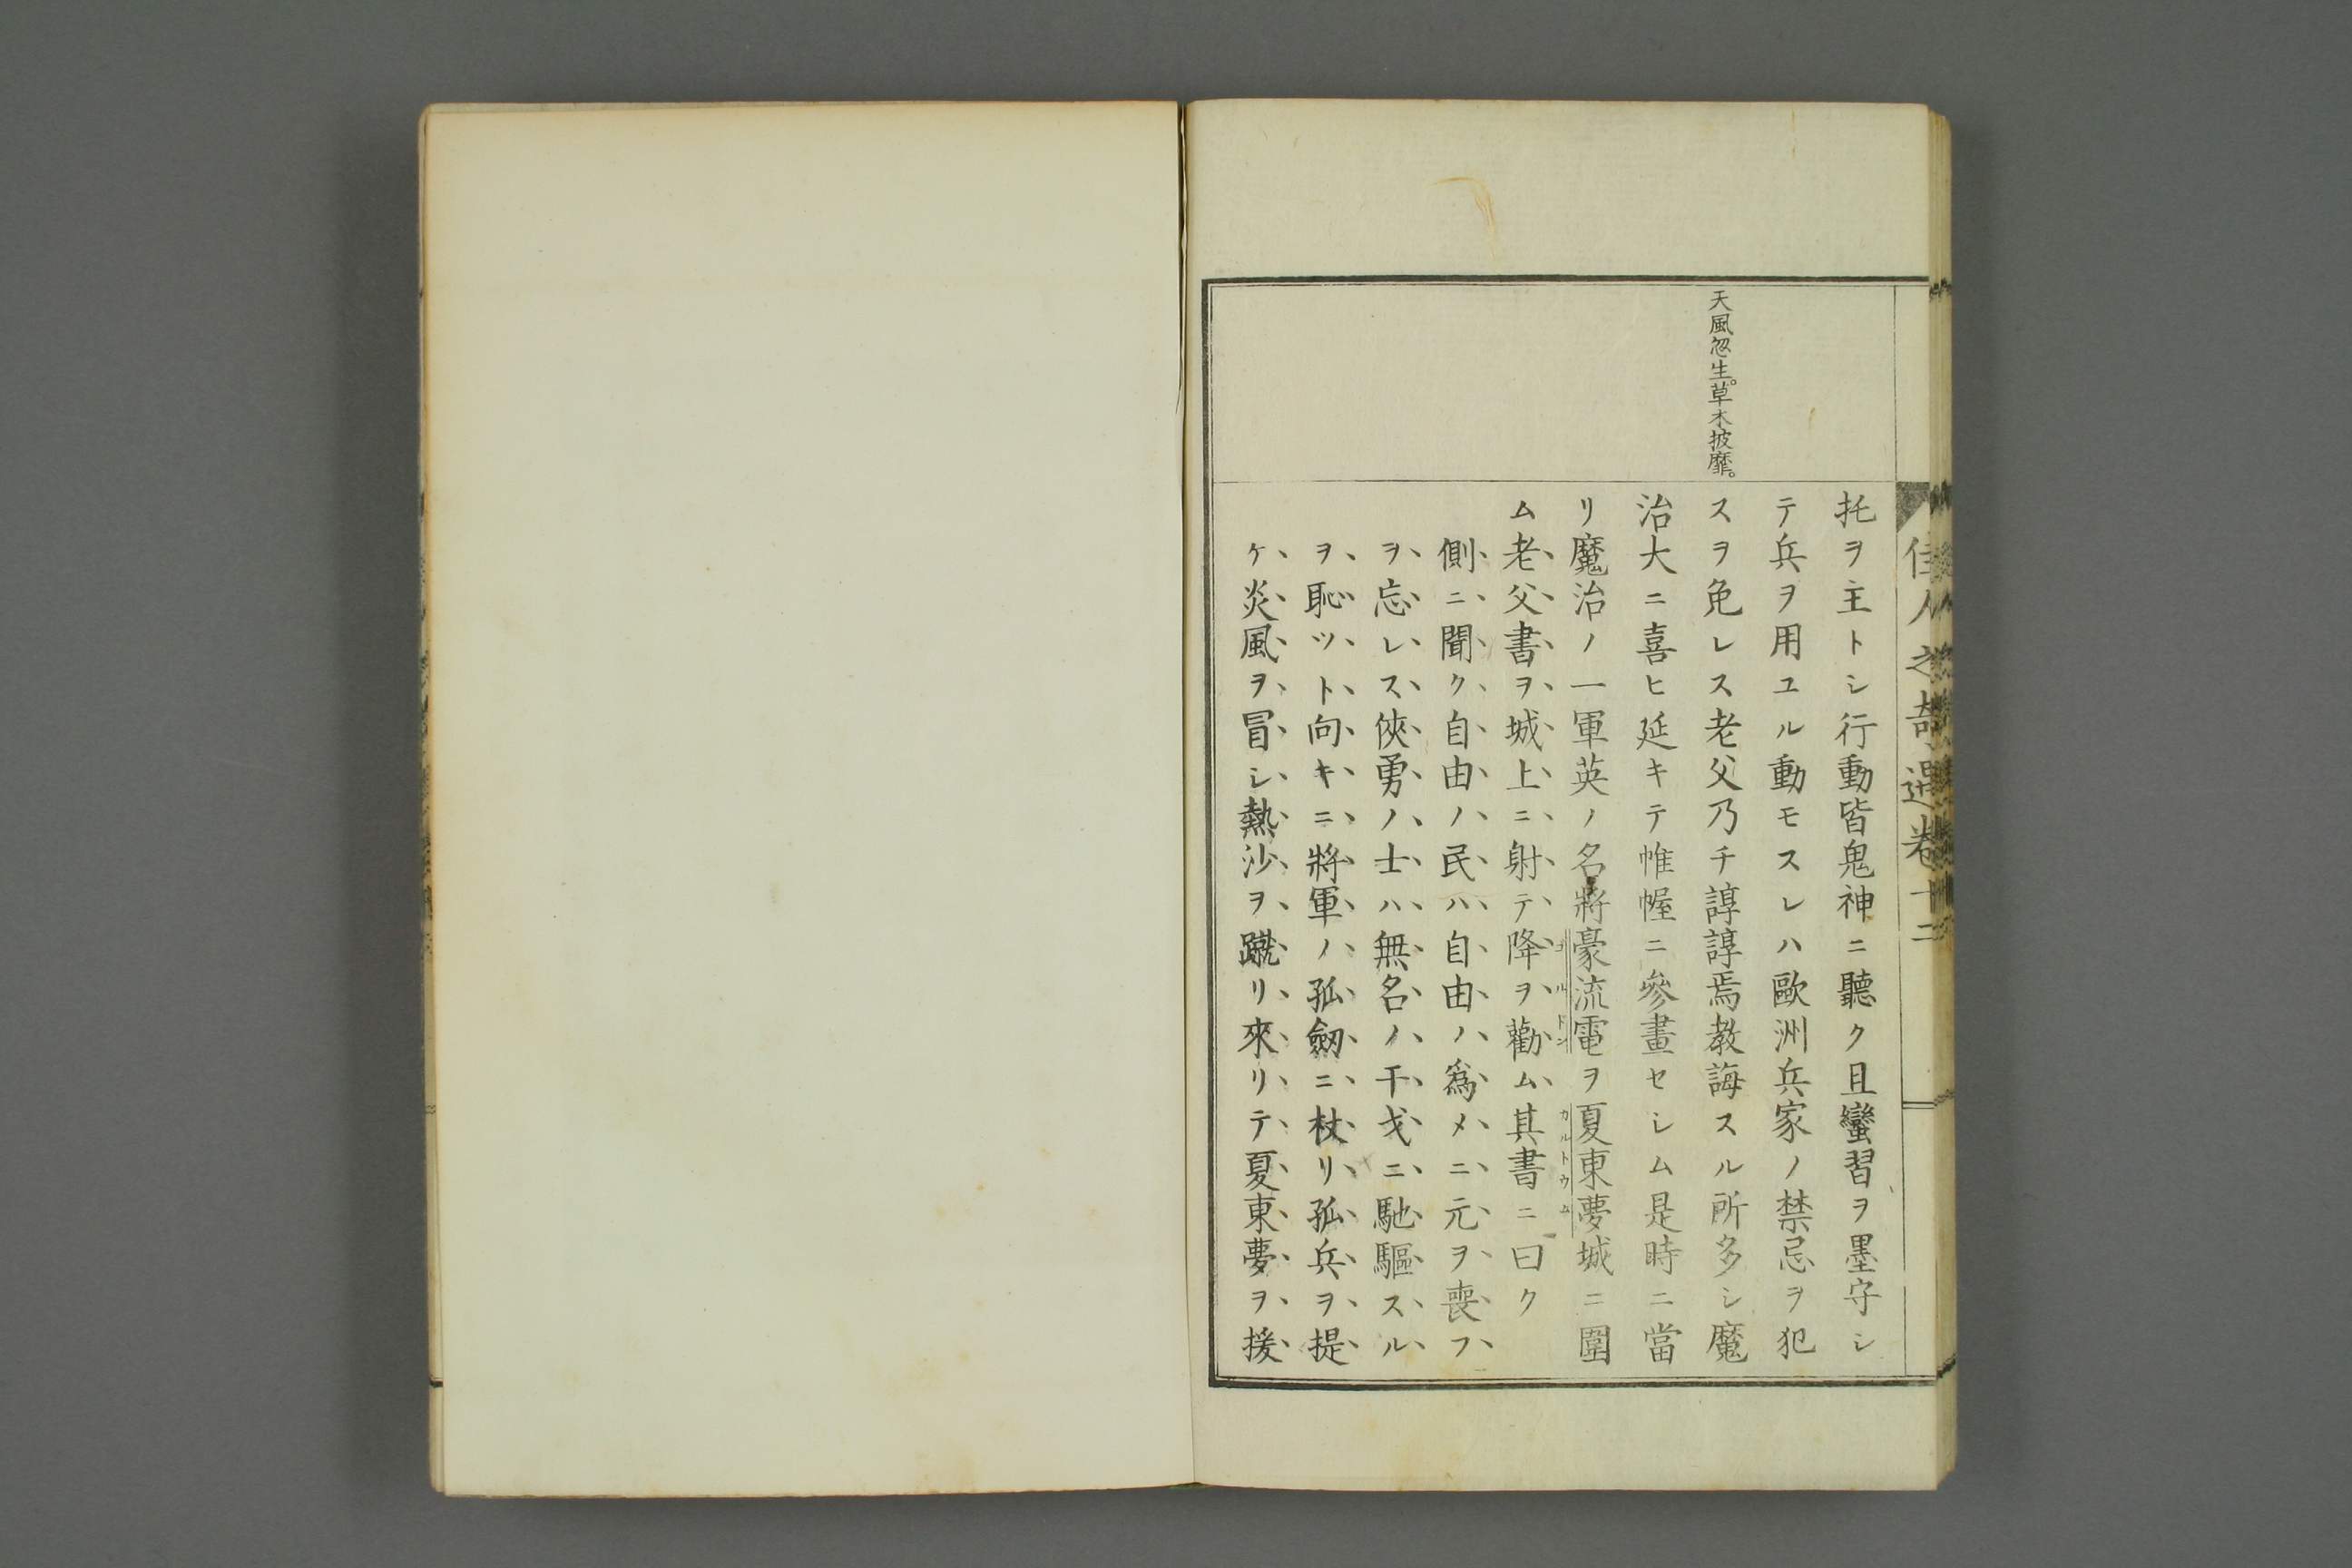 佳人之奇遇卷十二
天風忽生。草木披靡。
托ヲ主トシ行動皆鬼神ニ聽ク且蠻習ヲ墨守シ
テ兵ヲ用ユル動モスレハ歐洲兵家ノ禁忌ヲ犯
スヲ免レス老父乃チ諄諄焉教誨スル所多シ魔
治大ニ喜ヒ延キテ帷幄ニ參畫セシム是時ニ當
リ魔治ノ一軍英ノ名將豪流電ヲ夏東夢城ニ圍
ゴルドン
カルトウム
ム老父書ヲ城上ニ射テ降ヲ勸ム其書ニ曰ク
側ニ聞ク自由ノ民ハ自由ノ爲メニ元ヲ喪フ
ヲ忘レス俠勇ノ士ハ無名ノ干戈ニ馳驅スル
ヲ恥ツト向キニ將軍ノ孤劔ニ杖リ孤兵ヲ提
ケ炎風ヲ冒シ熱沙ヲ蹴リ來リテ夏東夢ヲ援